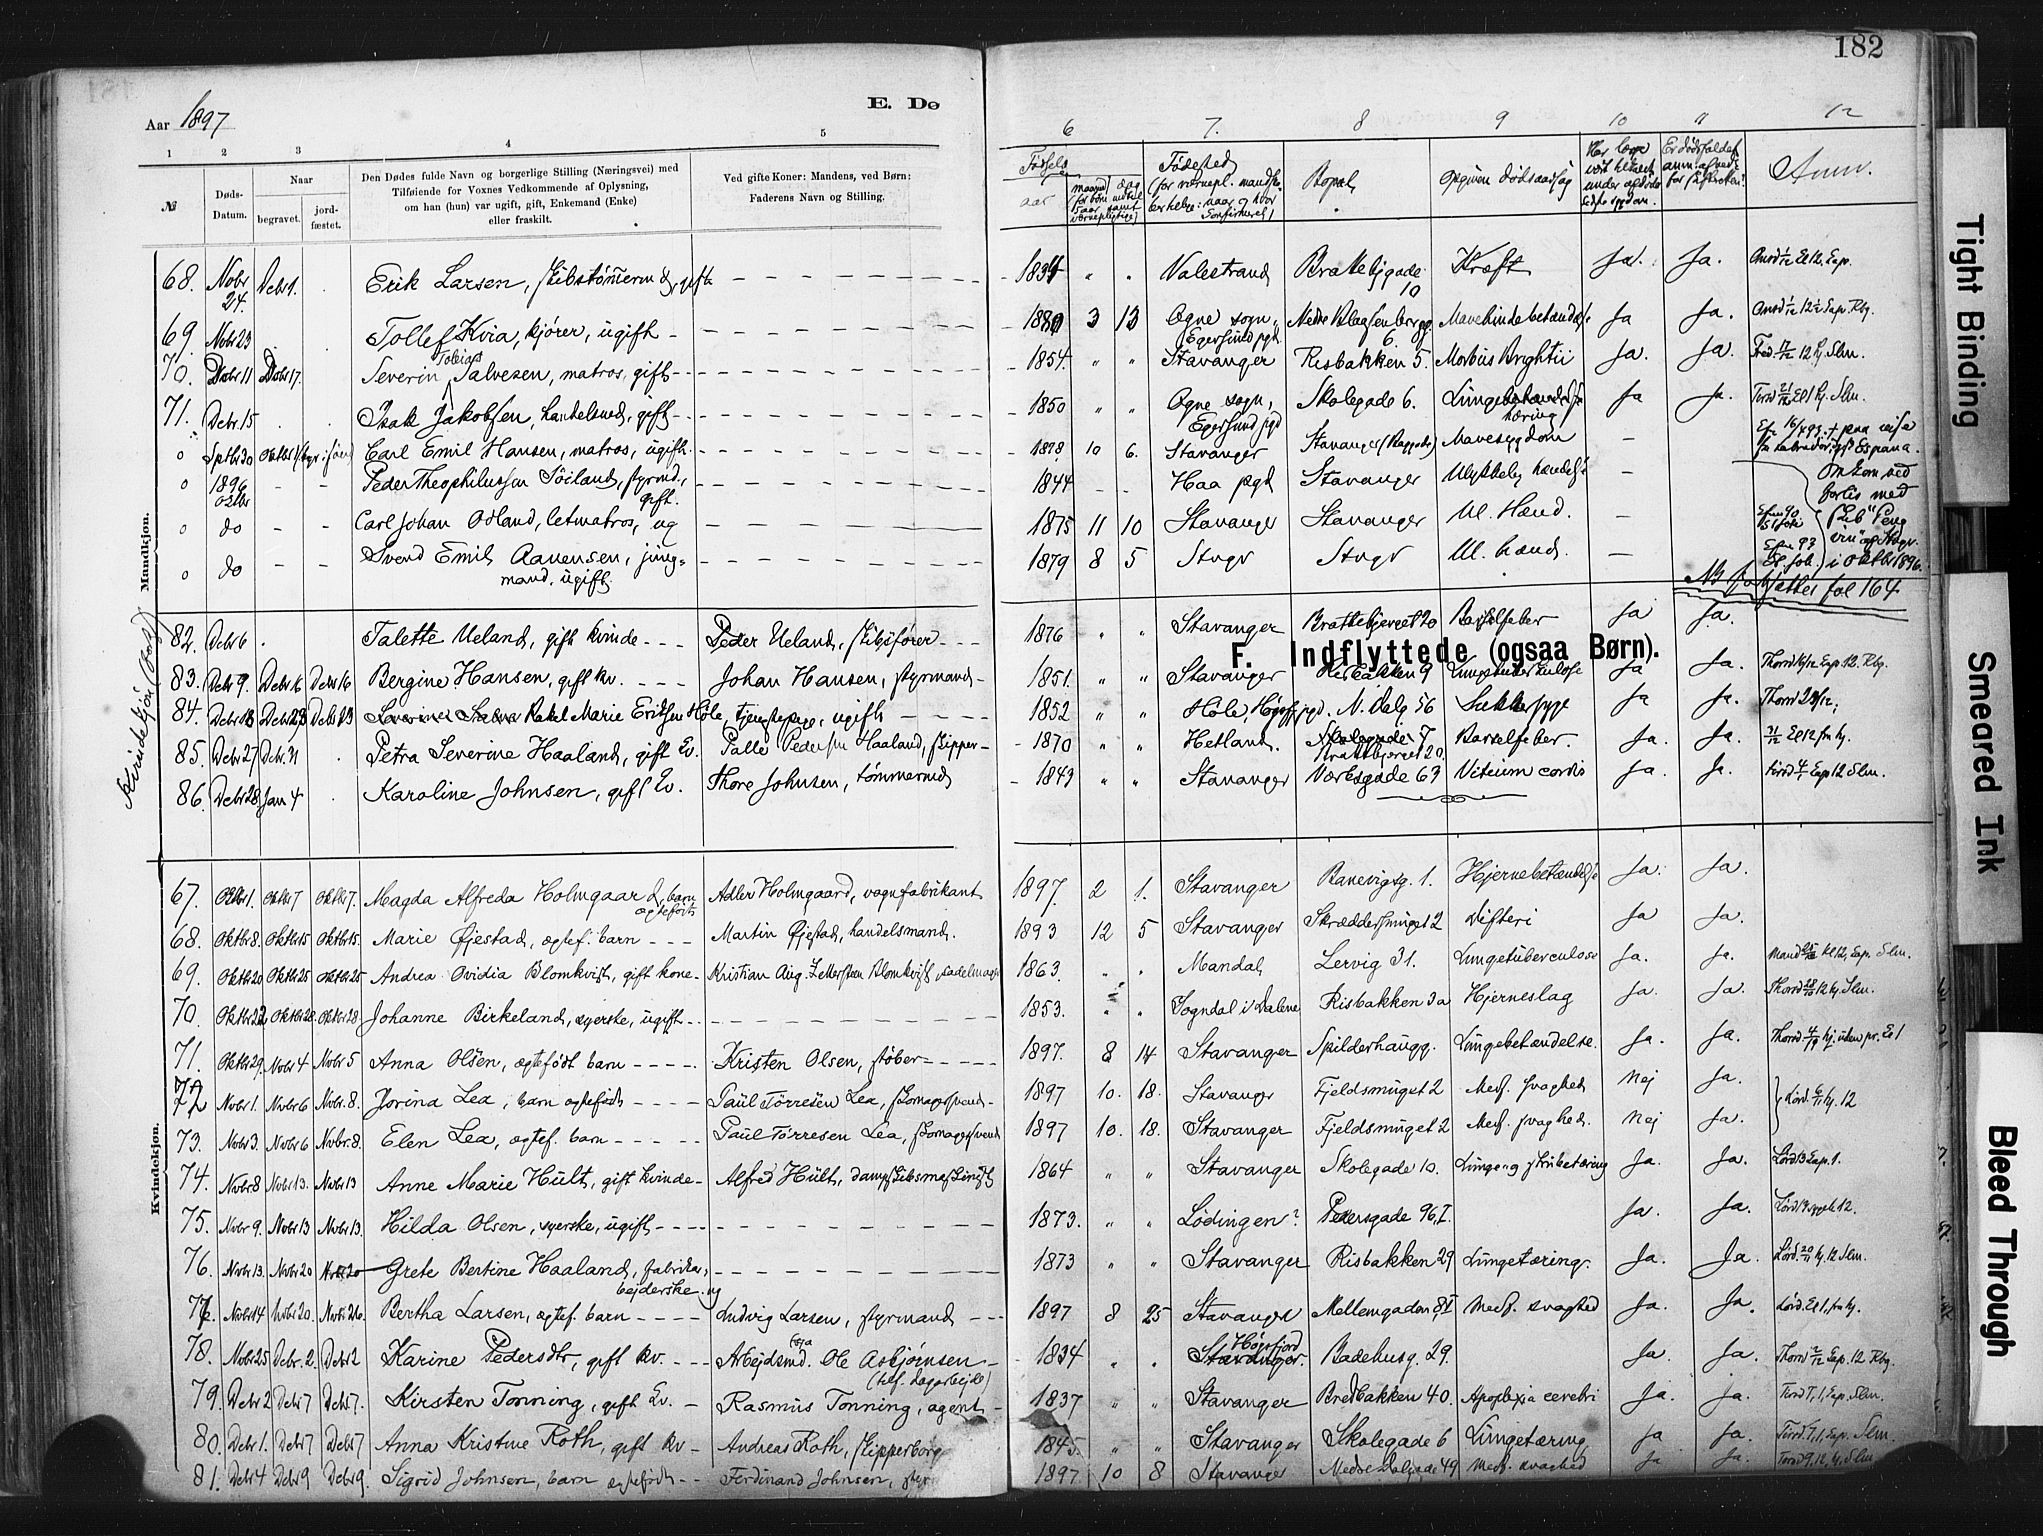 182
Aar 1897
E. Dø
1 2 3 4 5 6 7. 8 9 10 11 12
№
Døds-Datum.
Naar
begravet.
jord-fæstet.
Den Dødes fulde Navn og borgerlige Stilling (Næringsvei) med
Tilføiende for Voxnes Vedkommende af Oplysning,
om han (hun) var ugift, gift, Enkemand (Enke)
eller fraskilt.
Ved gifte Koner: Mandens, ved Børn:
Faderens Navn og Stilling.
Fødsels aar
Fødested
Bopæl
opgiven dødsaarsag
Anm.
Mandkjøn.
68. Novbr 24. Decbr 1. Erik Larsen, skibstømmermd, gift 1834 " " Valestrand Brattebjgade 10 Kræft Ja. Ja.
69. Novbr 23 Tollef Kvia, kjører, ugift 1880 3 13 Ogne sogn, Egersund pgd. Nedre Blaasenborgg. 6. Mavehindebetændelse Ja Ja.
70. Decbr 11 Decbr 17. Severin Tobias Salvesen, matros, gift 1854. " " Stavanger Risbakken 5. Morbus Brightii Ja. Ja.
71. Decbr. 15 Isak Jakobsen, handelsmd, gift 1850 " " Ogne sogn, Egersund pgd Skolegade 6. Lungetæring Ja Ja.
Carl Emil Hansen, matros, ugift. 1878 10 6. Stavanger Stavanger Mavesygdom –
1896 oktbr – – Peder Theophilussen Søiland, styrmd, gift. 1844 – – Haa pgd Stavanger Ulykkelig hændelse
do – – Carl Johan Odland, letmatros, ug 1875 11 10 Stavanger Stavanger Ul. Hænd. –
do – – Svend Emil Aanensen, jungmand, ugift 1879 8 5 Stvgr Stvgr Ul. hænd. –
Omkom ved forlis med skib "Pengvin" af Stvgr. i oktbr 1896.
fol 164
Kvindekjøn
82. Decbr 6 Talette Ueland, gift kvinde Peder Ueland, skibsfører 1876 " " Stavanger Brattebjerget 20 Barselfeber Ja Ja.
F. Indflyttede (ogsaa Børn).
83. Decbr 9. Decbr 16 Decbr 16 Bergine Hansen, gift kv. Johan Hansen, styrmand 1851. " " Stavanger Risbakken 9 Lungetuberkulose Ja Ja.
84. Decbr 18 Decbr 23 Decbr 23 Rakel Marie Eriksen Hole, tjenestepige, ugift 1852 " " Hole, Høgsfj. pgd. N. Dalg 56 Sukkersyge Ja Ja.
85. Decbr 27 Decbr. 31 Petra Severine Haaland, gift Kv. Palle Pedersen Haaland, skipper 1870 " " Hetland. Brattebjerget 20. Barselfeber. Ja. Ja.
86. Decbr 28 Jan 4 Karoline Johnsen, gift Kv. Thore Johnsen, tømmermd 1843 " " Stavanger Værksgade 63 Vitium cordis Ja. Ja.
Kvindekjøn.
67. Oktbr 1. Oktbr 7 Oktbr 7. Magda Alfreda Holmgaard, barn ægtefødt Adler Holmgaard, vognfabrikant 1897. 2 1. Stavanger Banevigsg. 1. Hjernebetændelse Ja. Ja.
68. Oktbr 8. Oktbr 15 Oktbr 15. Marie Øjestad, ægtef. barn Martin Øjestad, handelsmand. 1893 12 5 Stavanger Skræddersmuget 2 Difteri Ja Ja.
69. Oktbr 20 Oktbr 25 Oktbr 25 Andrea Ovidia Blomkvist, gift kone Kristian Aug. Zettersten Blomkvist, sadelmager 1863. " " Mandal Lervig 31. Lungetuberculose Ja. Ja.
70. Oktbr 22 Oktbr 28. Oktbr 28 Johanne Birkeland, syerske, ugift 1853. " " Sogndal i Dalene Risbakken 3a Hjerneslag Ja. Ja.
71. Oktbr 29. Novbr 4 Novbr 5 Anna Olsen, ægtefødt barn Kristen Olsen, støber 1897. 8 14 Stavanger Spilderhaugg. Lungebetændelse. Ja. Ja.
72 Novbr 1. Novbr 6 Novbr. 8. Jorina Lea, barn ægtefødt Paul Tørresen Lea, skomagersvend 1897 10. 18. Stavanger Fjeldsmuget 2 Medf. svaghed Nej Ja.
73. Novbr 3. Novbr 6 Novbr. 8. Elen Lea, ægtef. barn Paul Tørresen Lea, skomagersvend 1897 10. 18. Stavanger Fjeldsmuget 2 Medf. svaghed. Nej Ja.
74. Novbr 8 Novbr 13. Novbr 13 Anne Marie Hult, gift kvinde Alfred Hult, dampskibsmaskinist 1864 " " Stavanger Skolegade 10. Lunge og strubetæring Ja. Ja.
75. Novbr 9. Novbr 13 Novbr 13. Hilda Olsen, syerske, ugift 1873. " " Lødingen? Pedersgade 96, I. Ja. Ja.
76. Novbr 13. Novbr 20 Novbr 20 Grete Bertine Haaland, fabrikarbejderske. ug 1873 " " Stavanger Risbakken 29 Lungetæring. Ja. Ja.
77. Novbr 14 Novbr 20. Novbr 26. Bertha Larsen, ægtef. barn Ludvig Larsen, styrmand 1897 8 25 Stavanger Mellemgaden 8, I Medf. svaghed Ja. Ja.
78. Novbr 25 Decbr. 2. Decbr 2 Karine Pedersdtr, gift kv. Arbejdsmd. Ole Asbjørnsen 1834 " " Høgsfjord Badehusg. 29. Ja. Ja.
79. Decbr 2 Decbr 7 Decbr 7. Kirsten Tonning, gift Kv. Rasmus Tonning, agent 1837 " " Stavanger Bredbakken 40. Apoplexia cerebri Ja. Ja.
80. Decbr 1. Decbr 7 Decbr 7 Anna Kristine Roth, gift kv Andreas Roth, skipperborg 1845. " " Stavanger Skolegade 6 Lungetæring Ja Ja.
81. Decbr 4 Decbr 9 Decbr 9. Sigrid Johnsen, barn ægtefødt Ferdinand Johnsen, 1897 10 8 Stavanger Nedre Dalgade 49 Medf. svaghed Ja Ja.
Tight Binding
Smeared Ink
Bleed Through